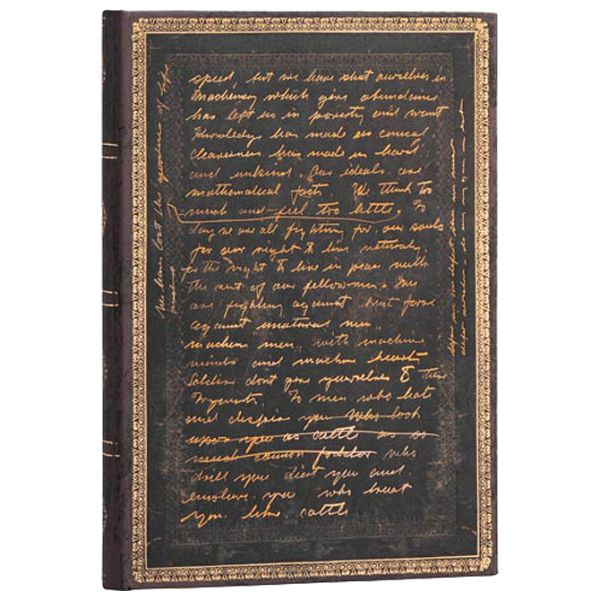 speed, but we have shut ourselves in
Machinery which gives abundance
has left us in poverty and want
Knowledge has made us cynical
cleverness has made us hard
and unkind. Our ideals are
mathematical facts We think too
much and feel too little. To
day we are all fighting for our souls
for our right to live naturally,
for the right to live in peace with
the rest of our fellowmen. We
are fighting against that force
against unnatural men,
machine men, with machine
minds and machine hearts
Soldiers dont give yourselves to these
To men who hate
and despise you who look
upon you as cattle as or
cannon fodder who
drill you diet you and
enslave you who treat
you like cattle
We have lost the